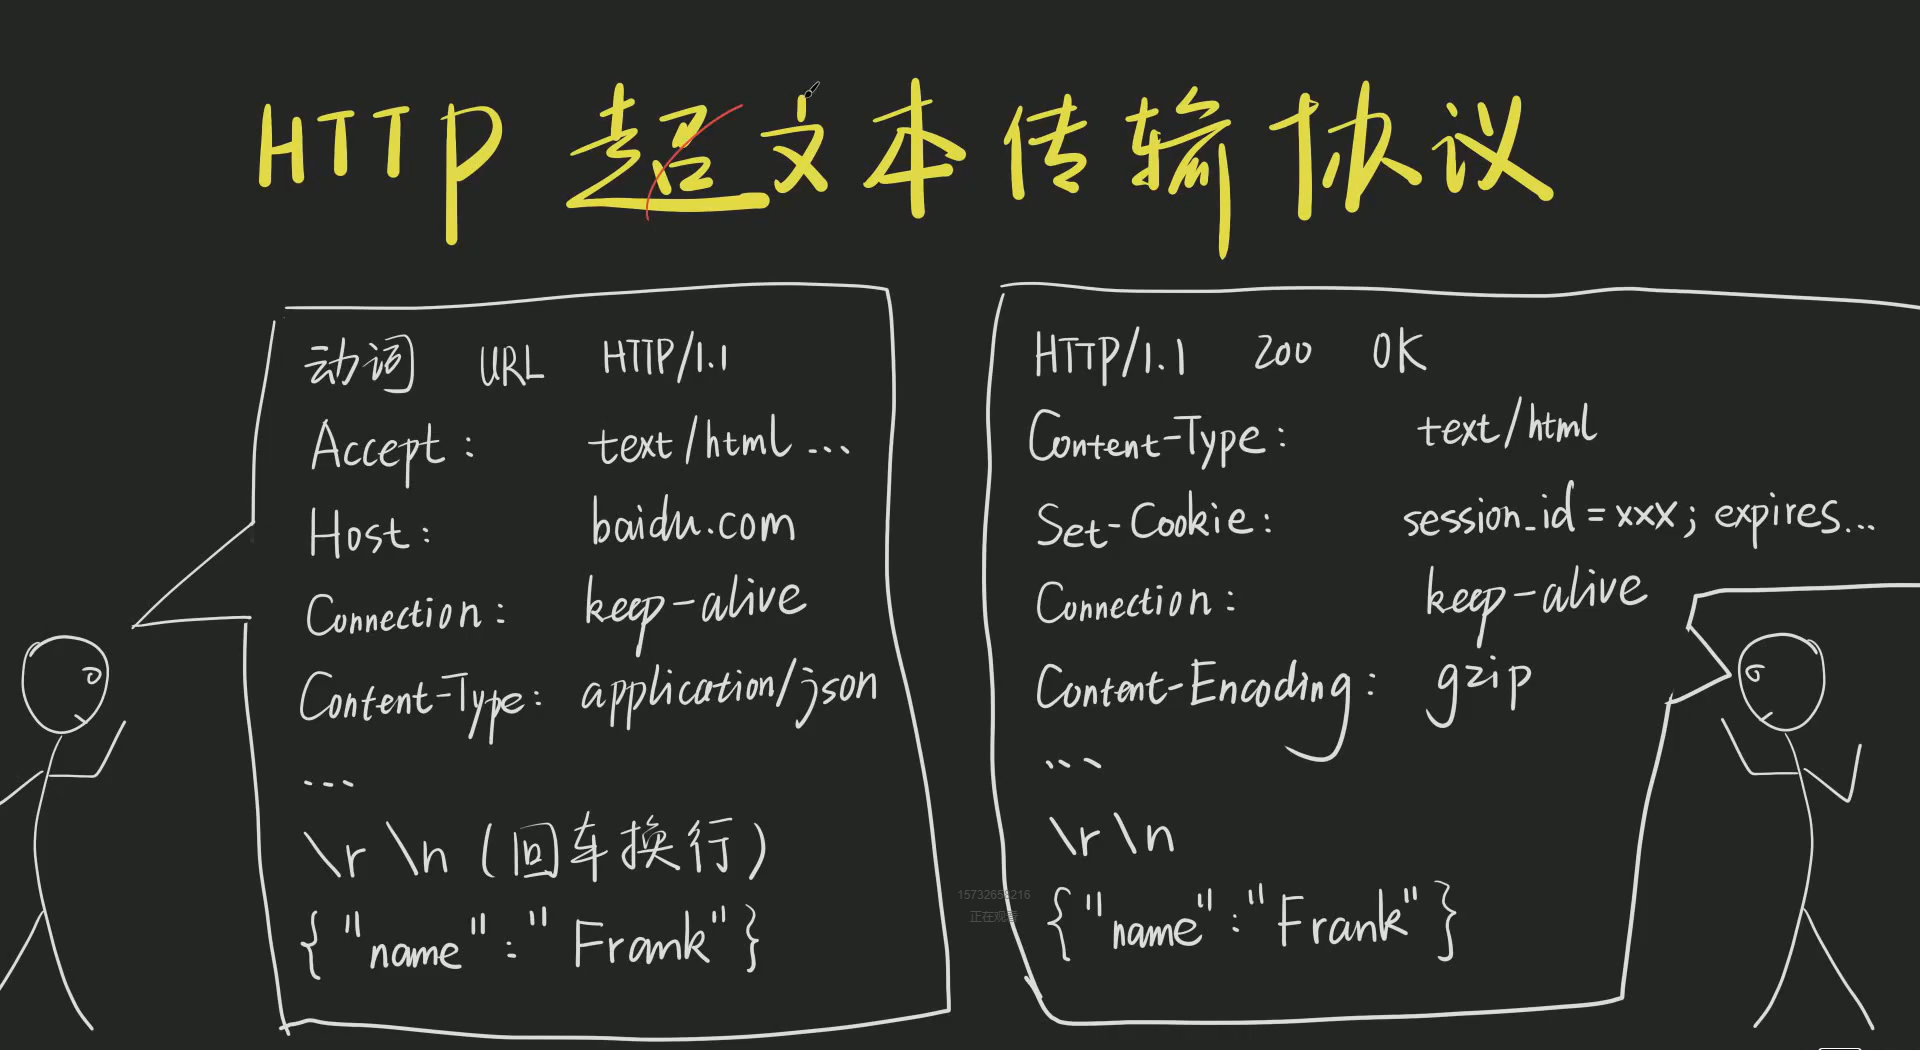 HTTP 超文本传输协议
动词 URL HTTP/1.1
Accept: text/html ...
Host: baidu.com
Connection: keep-alive
Content-Type: application/json
...
\r \n (回车换行)
{"name":"Frank"}
HTTP/1.1 200 OK
Content-Type: text/html
Set-Cookie: session_id=xxx; expires...
Connection: keep-alive
Content-Encoding: gzip
...
\r \n
{"name":"Frank"}
正在观看